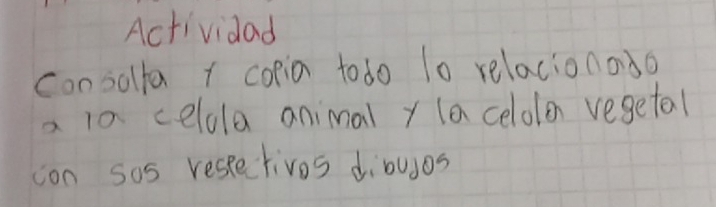 Actividad
Consulta y copia todo lo relacionado
a la celula animal y la celula vegetal
con sus respectivos dibujos